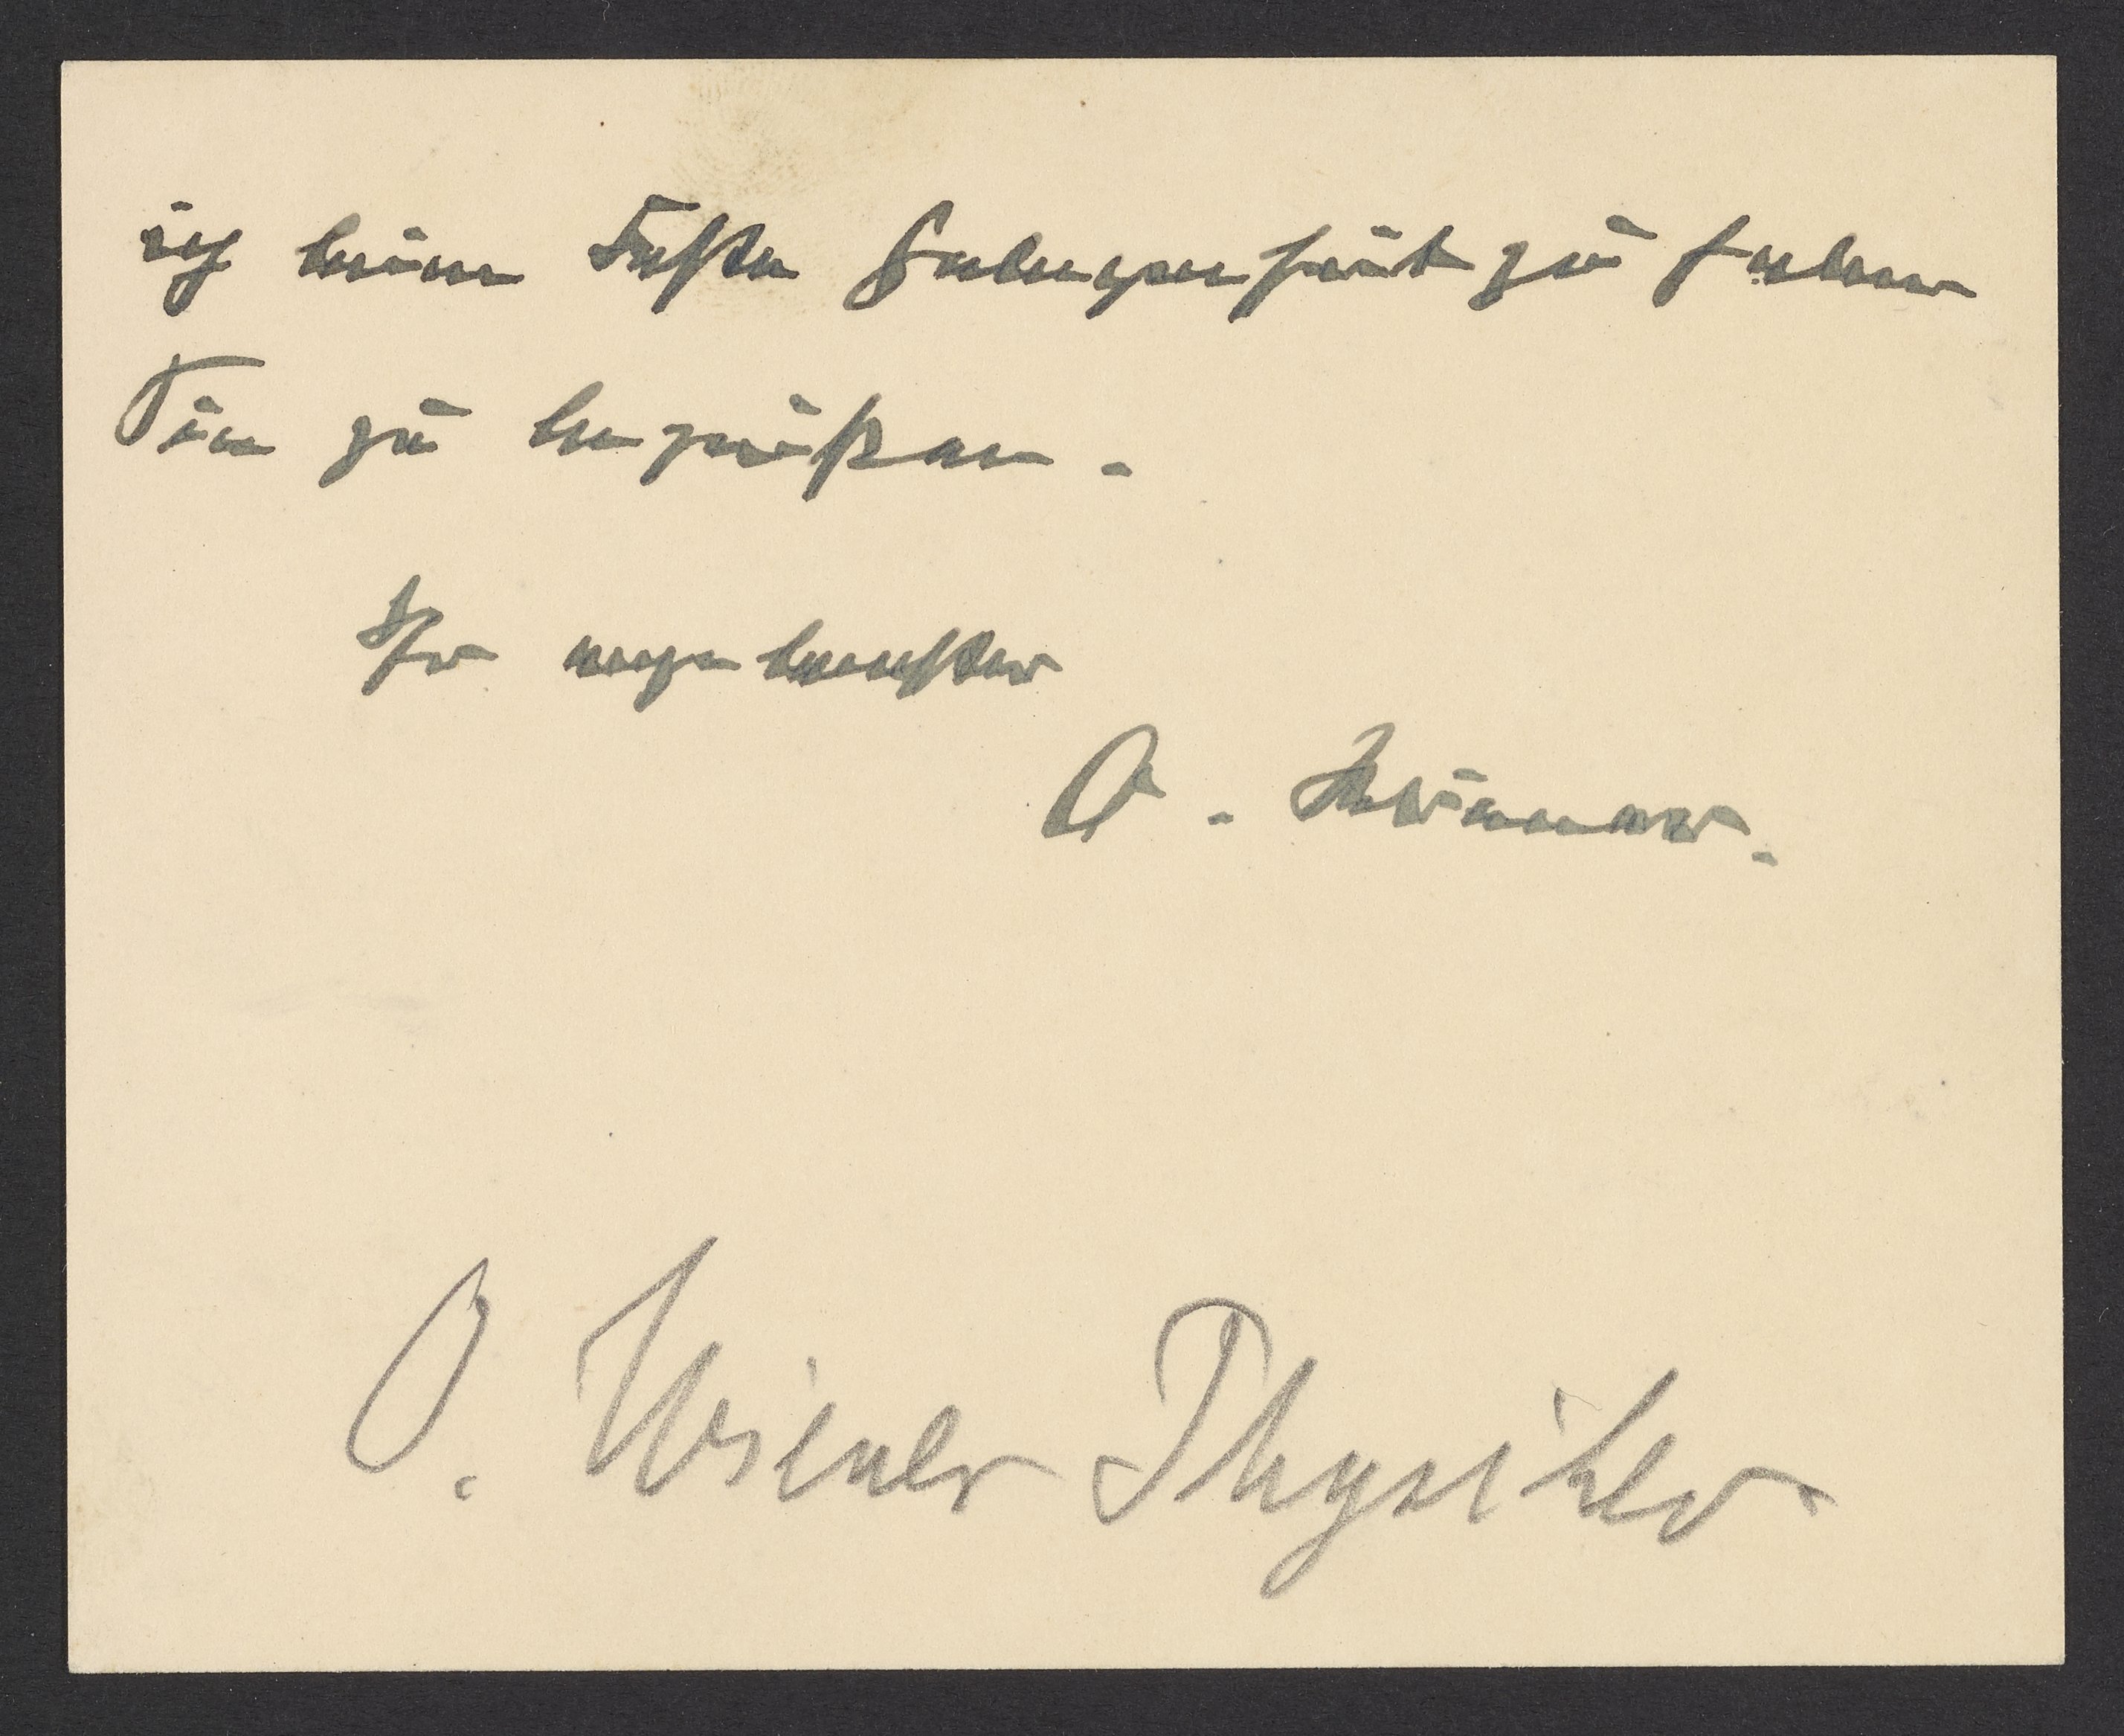 ich beim Feste Gelegenheit zu haben
Sie zu begrüßen.
Ihr ergebenster
O. Wiener.
O. Wiener Physiker